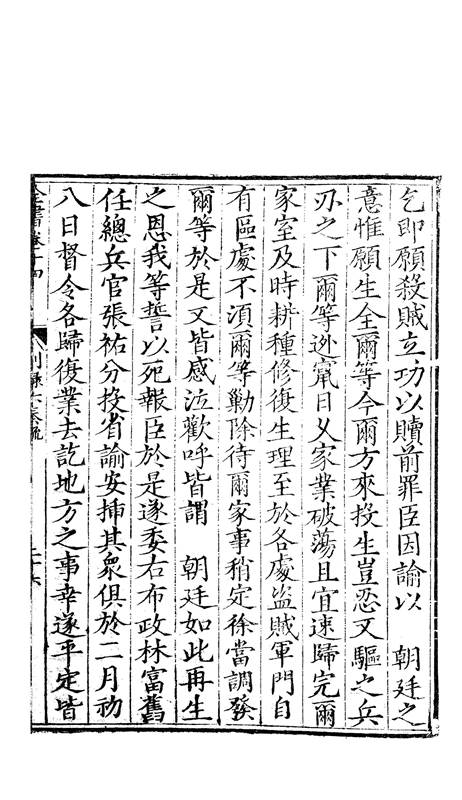 乞即願殺賊立功以贖前罪臣因諭以　朝廷之
意惟願生全爾等今爾方來投生豈忍又驅之兵
刃之下爾等逃竄日乆家業破蕩且宜速歸完爾
家室及時耕種修復生理至於各處盜賊軍門自
有區處不湏爾等勦除待爾家事稍定徐當調發
爾等於是又皆感泣歡呼皆謂　朝廷如此再生
之恩我等誓以死報臣於是遂委右布政林富舊
任總兵官張祐分投省諭安插其衆俱於二月初
八日督令各歸復業去訖地方之事幸遂平定皆
全書卷十四　別録六奏疏　二十六